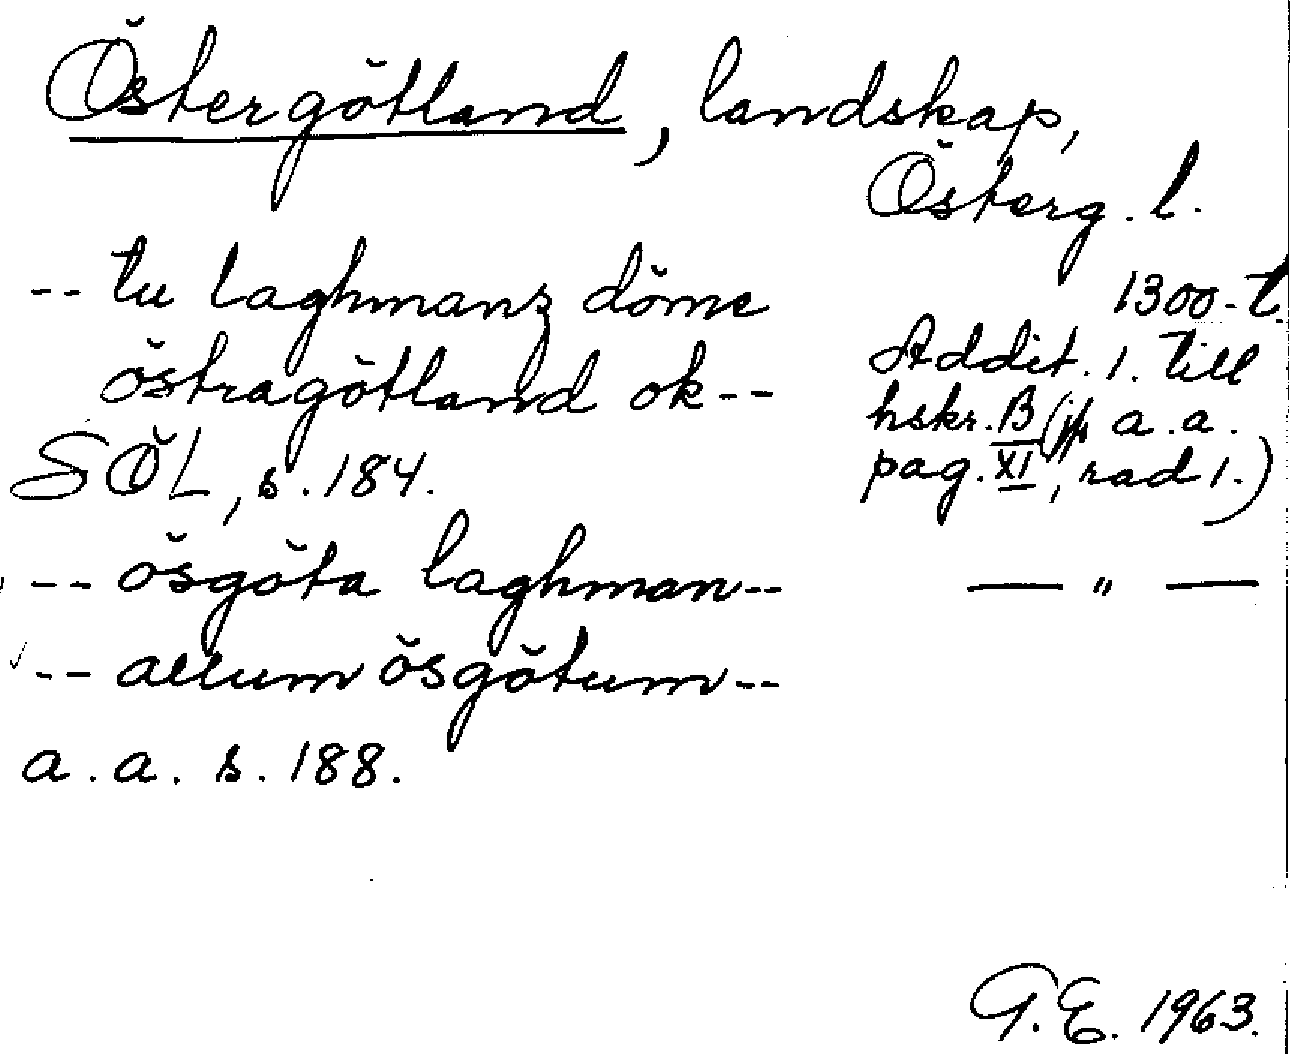 Östergötland, landskap,
Österg. l.
-- tu laghmanz döme
1300-t.
östragötland ok --
Addit. 1. till
hskr. B (jfr a.a.
SÖL, s. 184.
pag. XI, rad 1.)
-- ösgöta laghman --
— " —
-- allum ösgötum --
a.a. s. 188.
G.E. 1963.